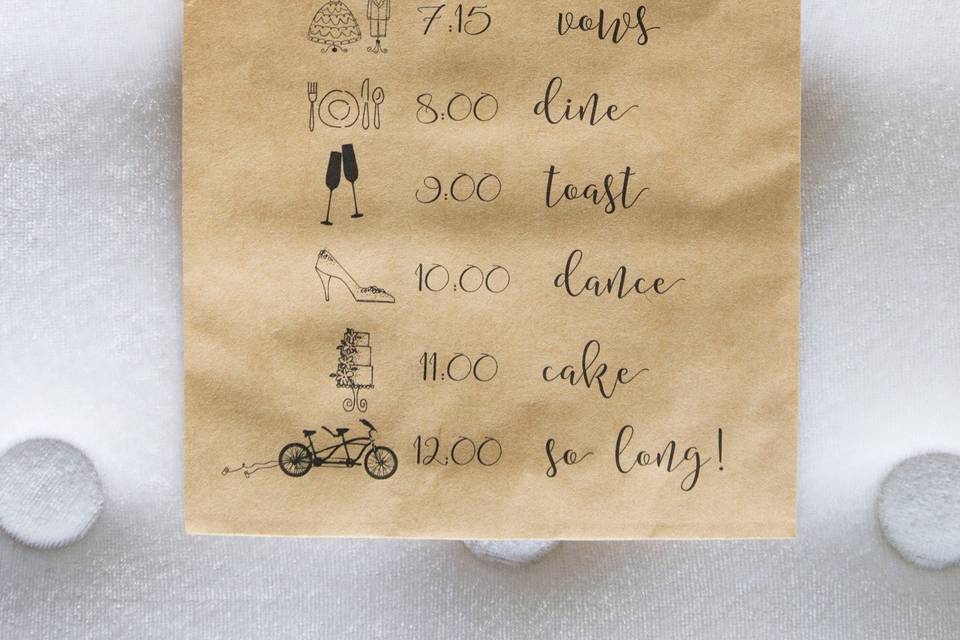 7:15 vows
8:00 dine
9:00 toast
10:00 dance
11:00 cake
12:00 so long!